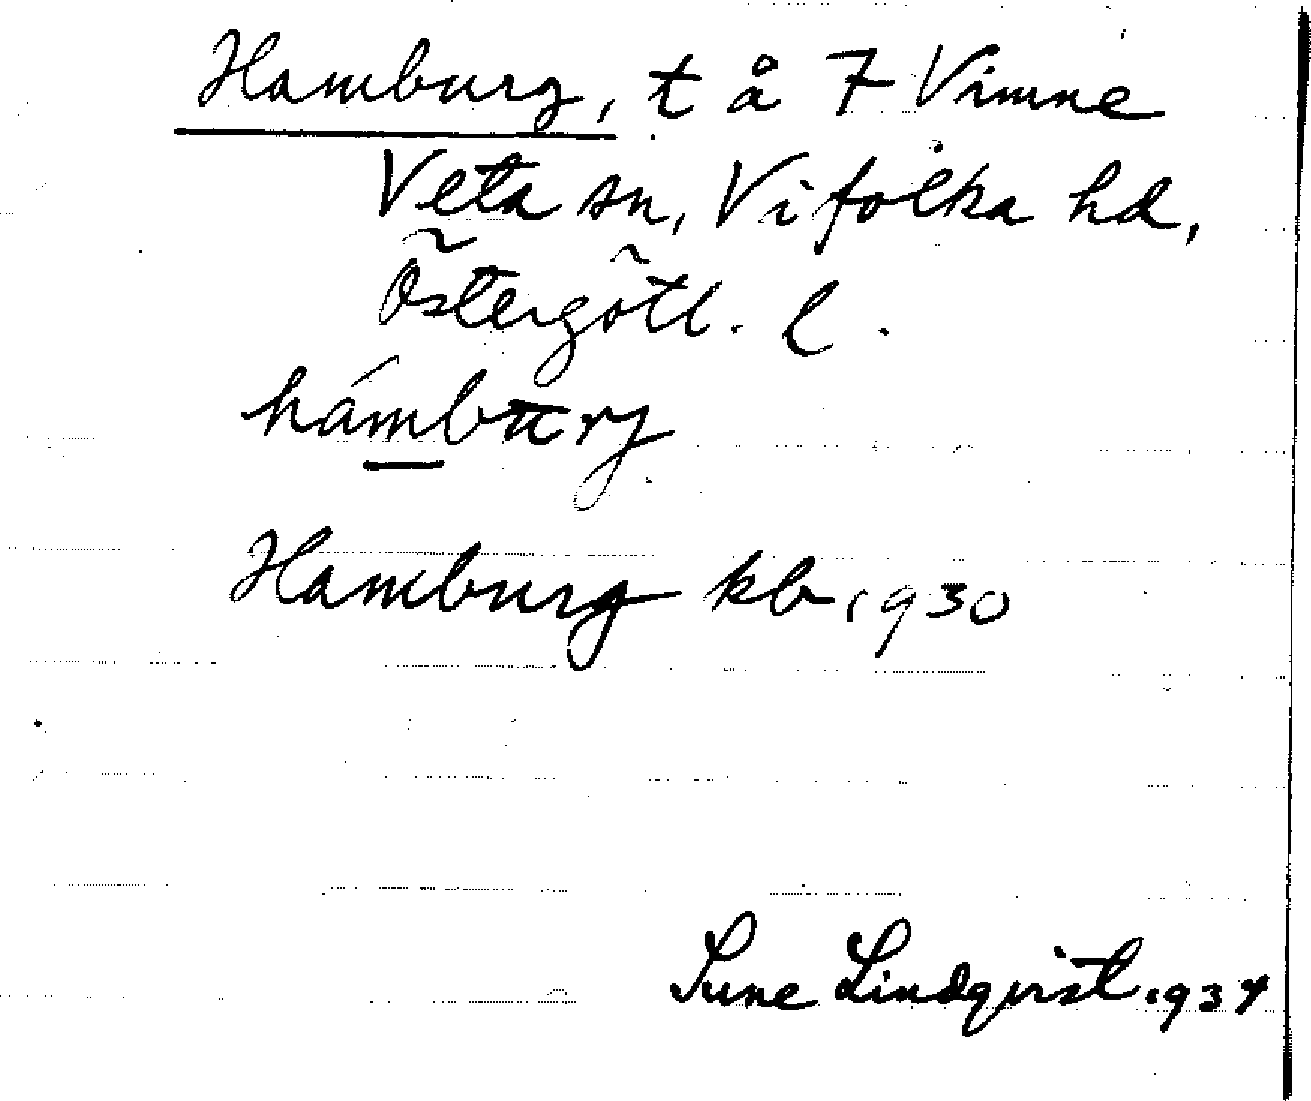 Hamburg, t å 7 Vimne
Veta sn, Vifolka hd,
Östergötl. l.
hámbury
Hamburg kb 1930
Sune Lindqvist 1934